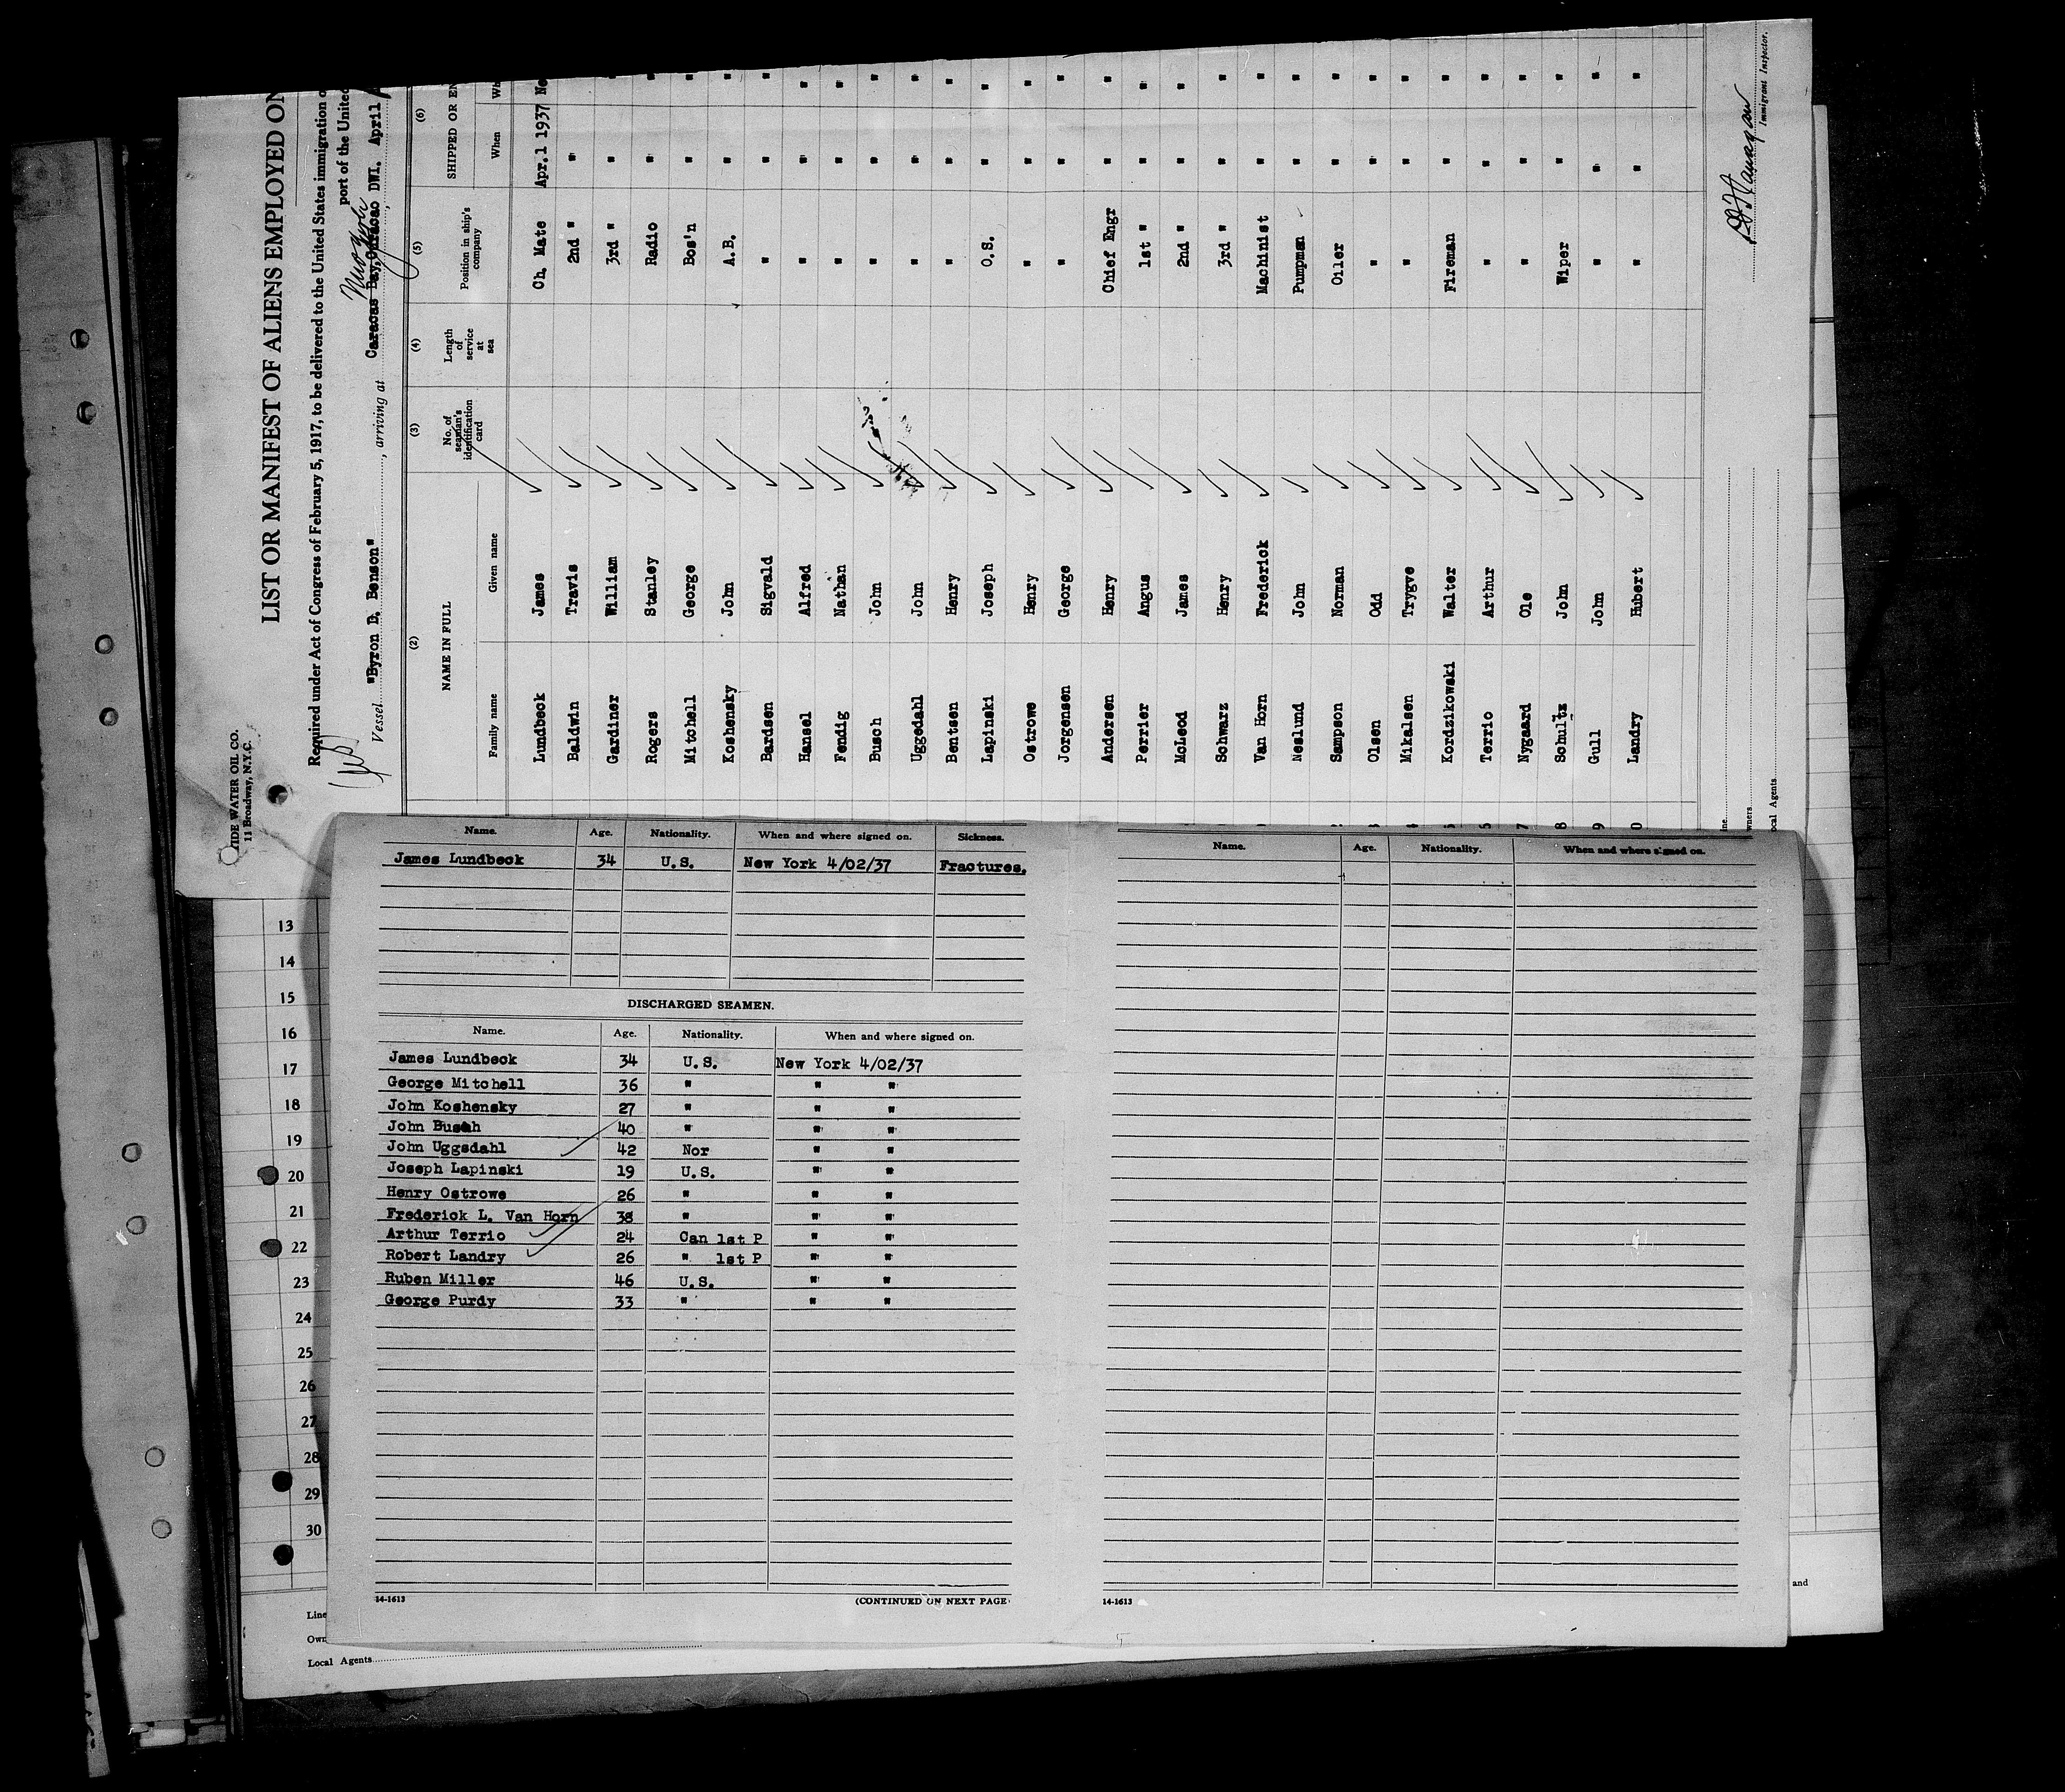 TIDE WATER OIL CO.
11 Broadway, N.Y.C.
LIST OR MANIFEST OF ALIENS EMPLOYED ON
Required under Act of Congress of February 5, 1917, to be delivered to the United States immigration o
port of the United
Vessel "Byron D. Benson", arriving at Caracas Bay, Curacao DWI. April
(2) (3) (4) (5) (6)
NAME IN FULL No. of seaman's identification card Length of service at sea Position in ship's company SHIPPED OR EN
Family name Given name When Wh
Lundbeck James Ch. Mate Apr.1 1937 Ne
Baldwin Travis 2nd " "
Gardiner William 3rd " " "
Rogers Stanley Radio " "
Mitchell George Bos'n " "
Koshensky John A.B. " "
Bardsen Sigvald " " "
Hansel Alfred " " "
Fendig Nathan " " "
Busch John " " "
Uggedahl John " " "
Bentsen Henry " " "
Lapinski Joseph O.S. " "
Ostrowe Henry " " "
Jorgensen George " " "
Andersen Henry Chief Engr " "
Perrier Angus 1st " " "
McLeod James 2nd " " "
Schwarz Henry 3rd " " "
Van Horn Frederick Machinist " "
Neslund John Pumpman " "
Sampson Norman Oiler " "
Olsen Odd " " "
Mikalsen Trygve " " "
Kordzikowski Walter Fireman " "
Terrio Arthur " " "
Nygaard Ole " " "
Schultz John Wiper " "
Gull John " " "
Landry Hubert " " "
Immigrant Inspector.
ocal Agents
Name. Age. Nationality. When and where signed on. Sickness.
James Lundbeck 34 U.S. New York 4/02/37 Fractures.
DISCHARGED SEAMEN.
Name. Age. Nationality. When and where signed on.
James Lundbeck 34 U.S. New York 4/02/37
George Mitchell 36 " " "
John Koshensky 27 " " "
John Busch 40 " " "
John Uggsdahl 42 Nor " "
Joseph Lapinski 19 U.S. " "
Henry Ostrowe 26 " " "
Frederick L. Van Horn 38 " " "
Arthur Terrio 24 Can 1st P " "
Robert Landry 26 " 1st P " "
Ruben Miller 46 U.S. " "
George Purdy 33 " " "
14-1613 (CONTINUED ON NEXT PAGE
Name. Age. Nationality. When and where signed on.
14-1613
13
14
15
16
17
18
19
20
21
22
23
24
25
26
27
28
29
30
Line
Own
Local Agents
and